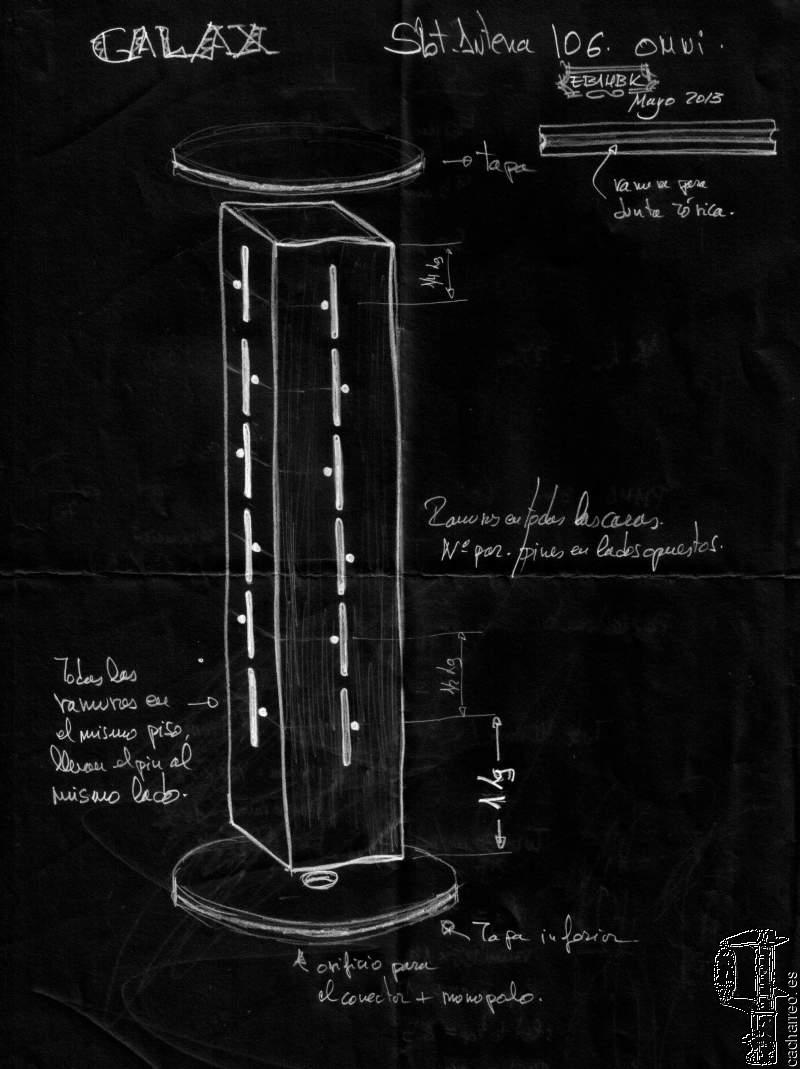 GALAX
Slot Antena 106. omni.
EB1HBK
Mayo 2013
tapa
ranura para
Junta Tórica.
1/4 λg
Ranuras en todas las caras.
Nº par. pines en lados opuestos.
1/2 λg
Todas las
ranuras en
el mismo piso,
llevan el pin al
mismo lado.
1 λg
Tapa inferior
orificio para
el conector + monopolo.
cacharreo.es